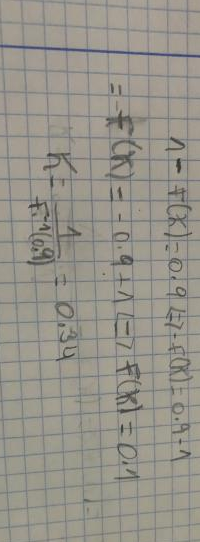 1 - F(K) = 0.9 <=> -F(K) = 0.9 - 1
= -F(K) = -0.9 + 1 <=> F(K) = 0.1
K = 1/F^-1(0.9) = 0.34